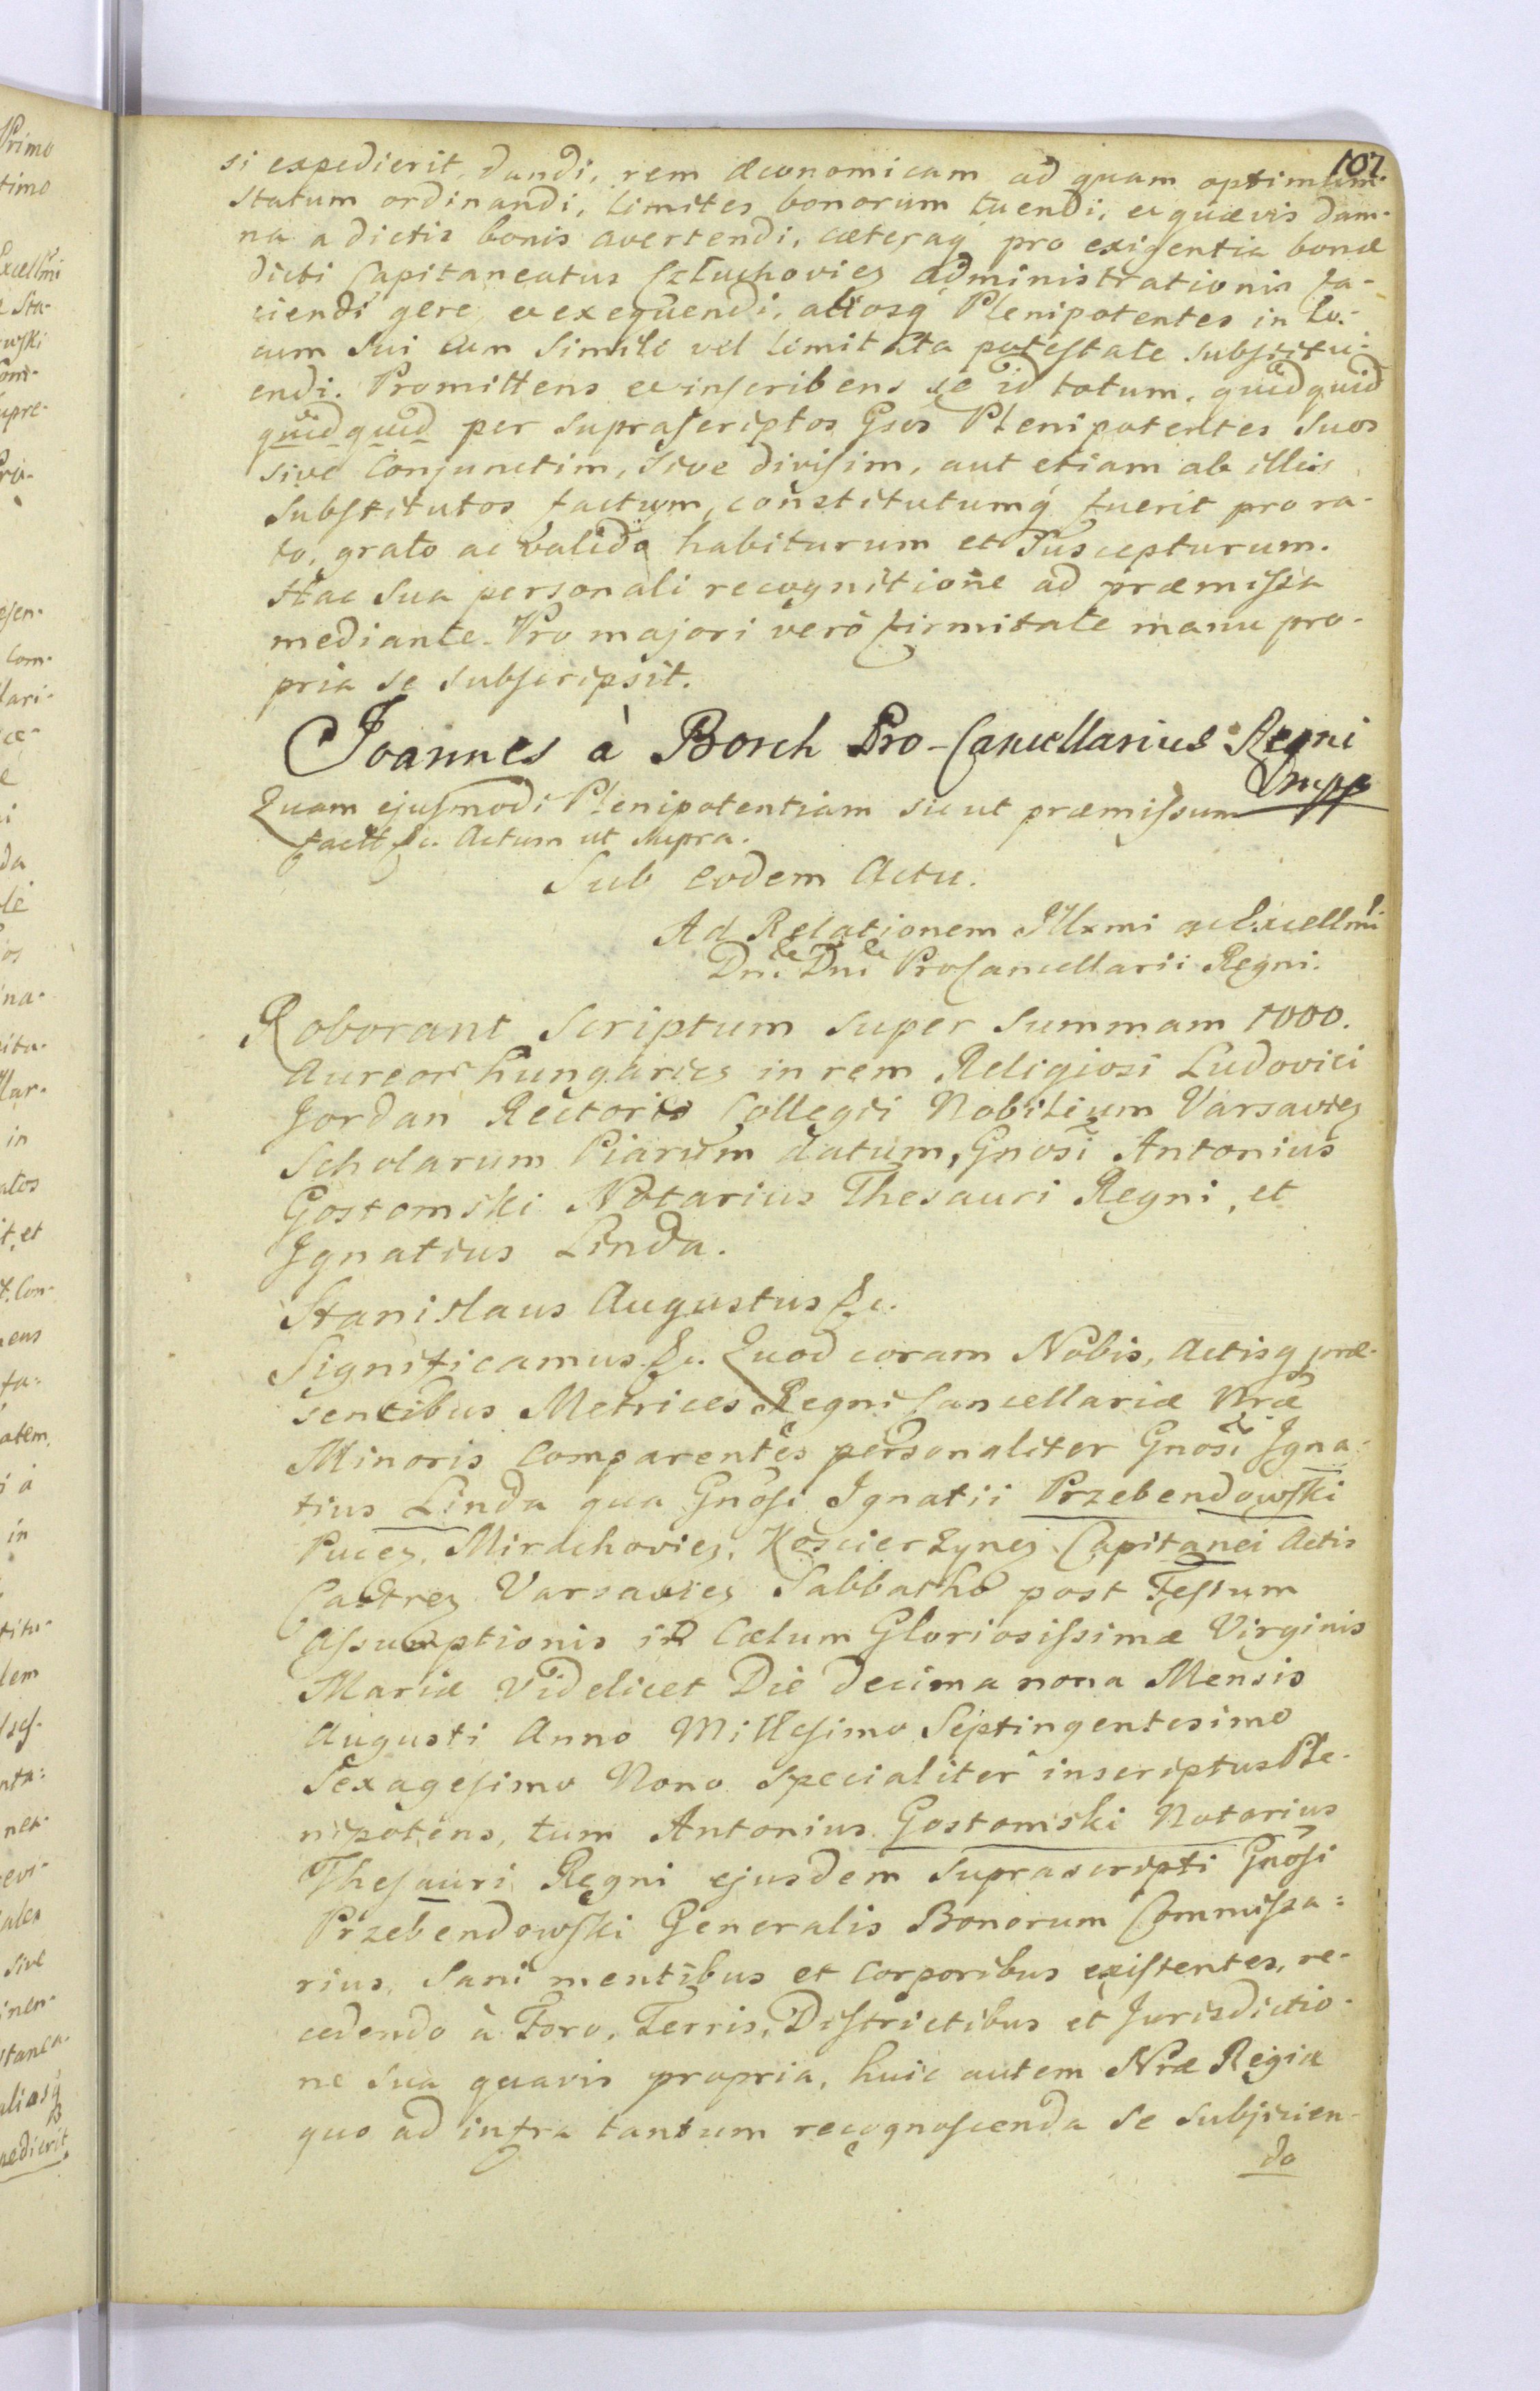 107.
si expedierit, dandi, rem œconomicam ad quam optimum
statum ordinandi, limites bonorum tuendi, et quævis dam-
na a dictis bonis avertendi, cæteraq pro exigentia bonæ
dicti Capitaneatus Człuchovieṉ administrationis fa-
ciendi gere et exequendi, aliosq Plenipotentes in lo-
cum sui cum simili vel limitata potestate substitu-
endi. Promittens et inscribens se id totum, quidquid
quidquid per suprascriptos Gsos Plenipotentes suos
sive conjunctim, sive divisim, aut etiam ab illis
substitutos factum, constitutumq fuerit pro ra-
to, grato ac valido habiturum et suscepturum.
Hac sua personali recognitione ad præmissa
mediante. Pro majori verò firmitate manu pro-
pria se subscripsit.
Joannes à Borch Pro-Cancellarius Regni
mpp
Quam ejusmodi Plenipotentiam sicut præmissum
factt &c. Actum ut supra.
Sub eodem Actu.
Ad Relationem Illxmi ac Excellmi
Dni Dni ProCancellarii Regni.
Roborant Scriptum super summam 1000.
Aureor hungarics in rem Religiosi Ludovici
Jordan Rectoris Collegii Nobilium Varsavies
Scholarum Piarum datum, Gnosi Antonius
Gostomski Notarius Thesauri Regni, et
Ignatius Linda.
Stanislaus Augustus &c.
Significamus &c. Quod coram Nobis, Actisq præ-
sentibus Metrices Regni Cancellariæ Nræ
Minoris comparentes personaliter Gnosi Igna-
tius Linda qua Gnosi Ignatii Przebendowski
Puceṉ, Mirachovieṉ, Koscierzyneṉ Capitanei Actis
Castreṉ Varsavieṉ Sabbatho post Festum
Assumptionis in Cœlum Gloriosissimæ Virginis
Mariæ Videlicet Die decima nona Mensis
Augusti Anno Millesimo Septingentesimo
Sexagesimo Nono specialiter inscriptus Ple-
nipotens, tum Antonius Gostomski Notarius
Thesauri Regni ejusdem suprascripti Gnosi
Przebendowski Generalis Bonorum Commissa=
rius, Sani mentibus et corporibus existentes, re-
cedendo à Foro, Terris, Districtibus et Jurisdictio-
ne sua quavis propria, huic autem Nræ Regiæ
quo ad infra tantum recognoscenda se subjicien-
do